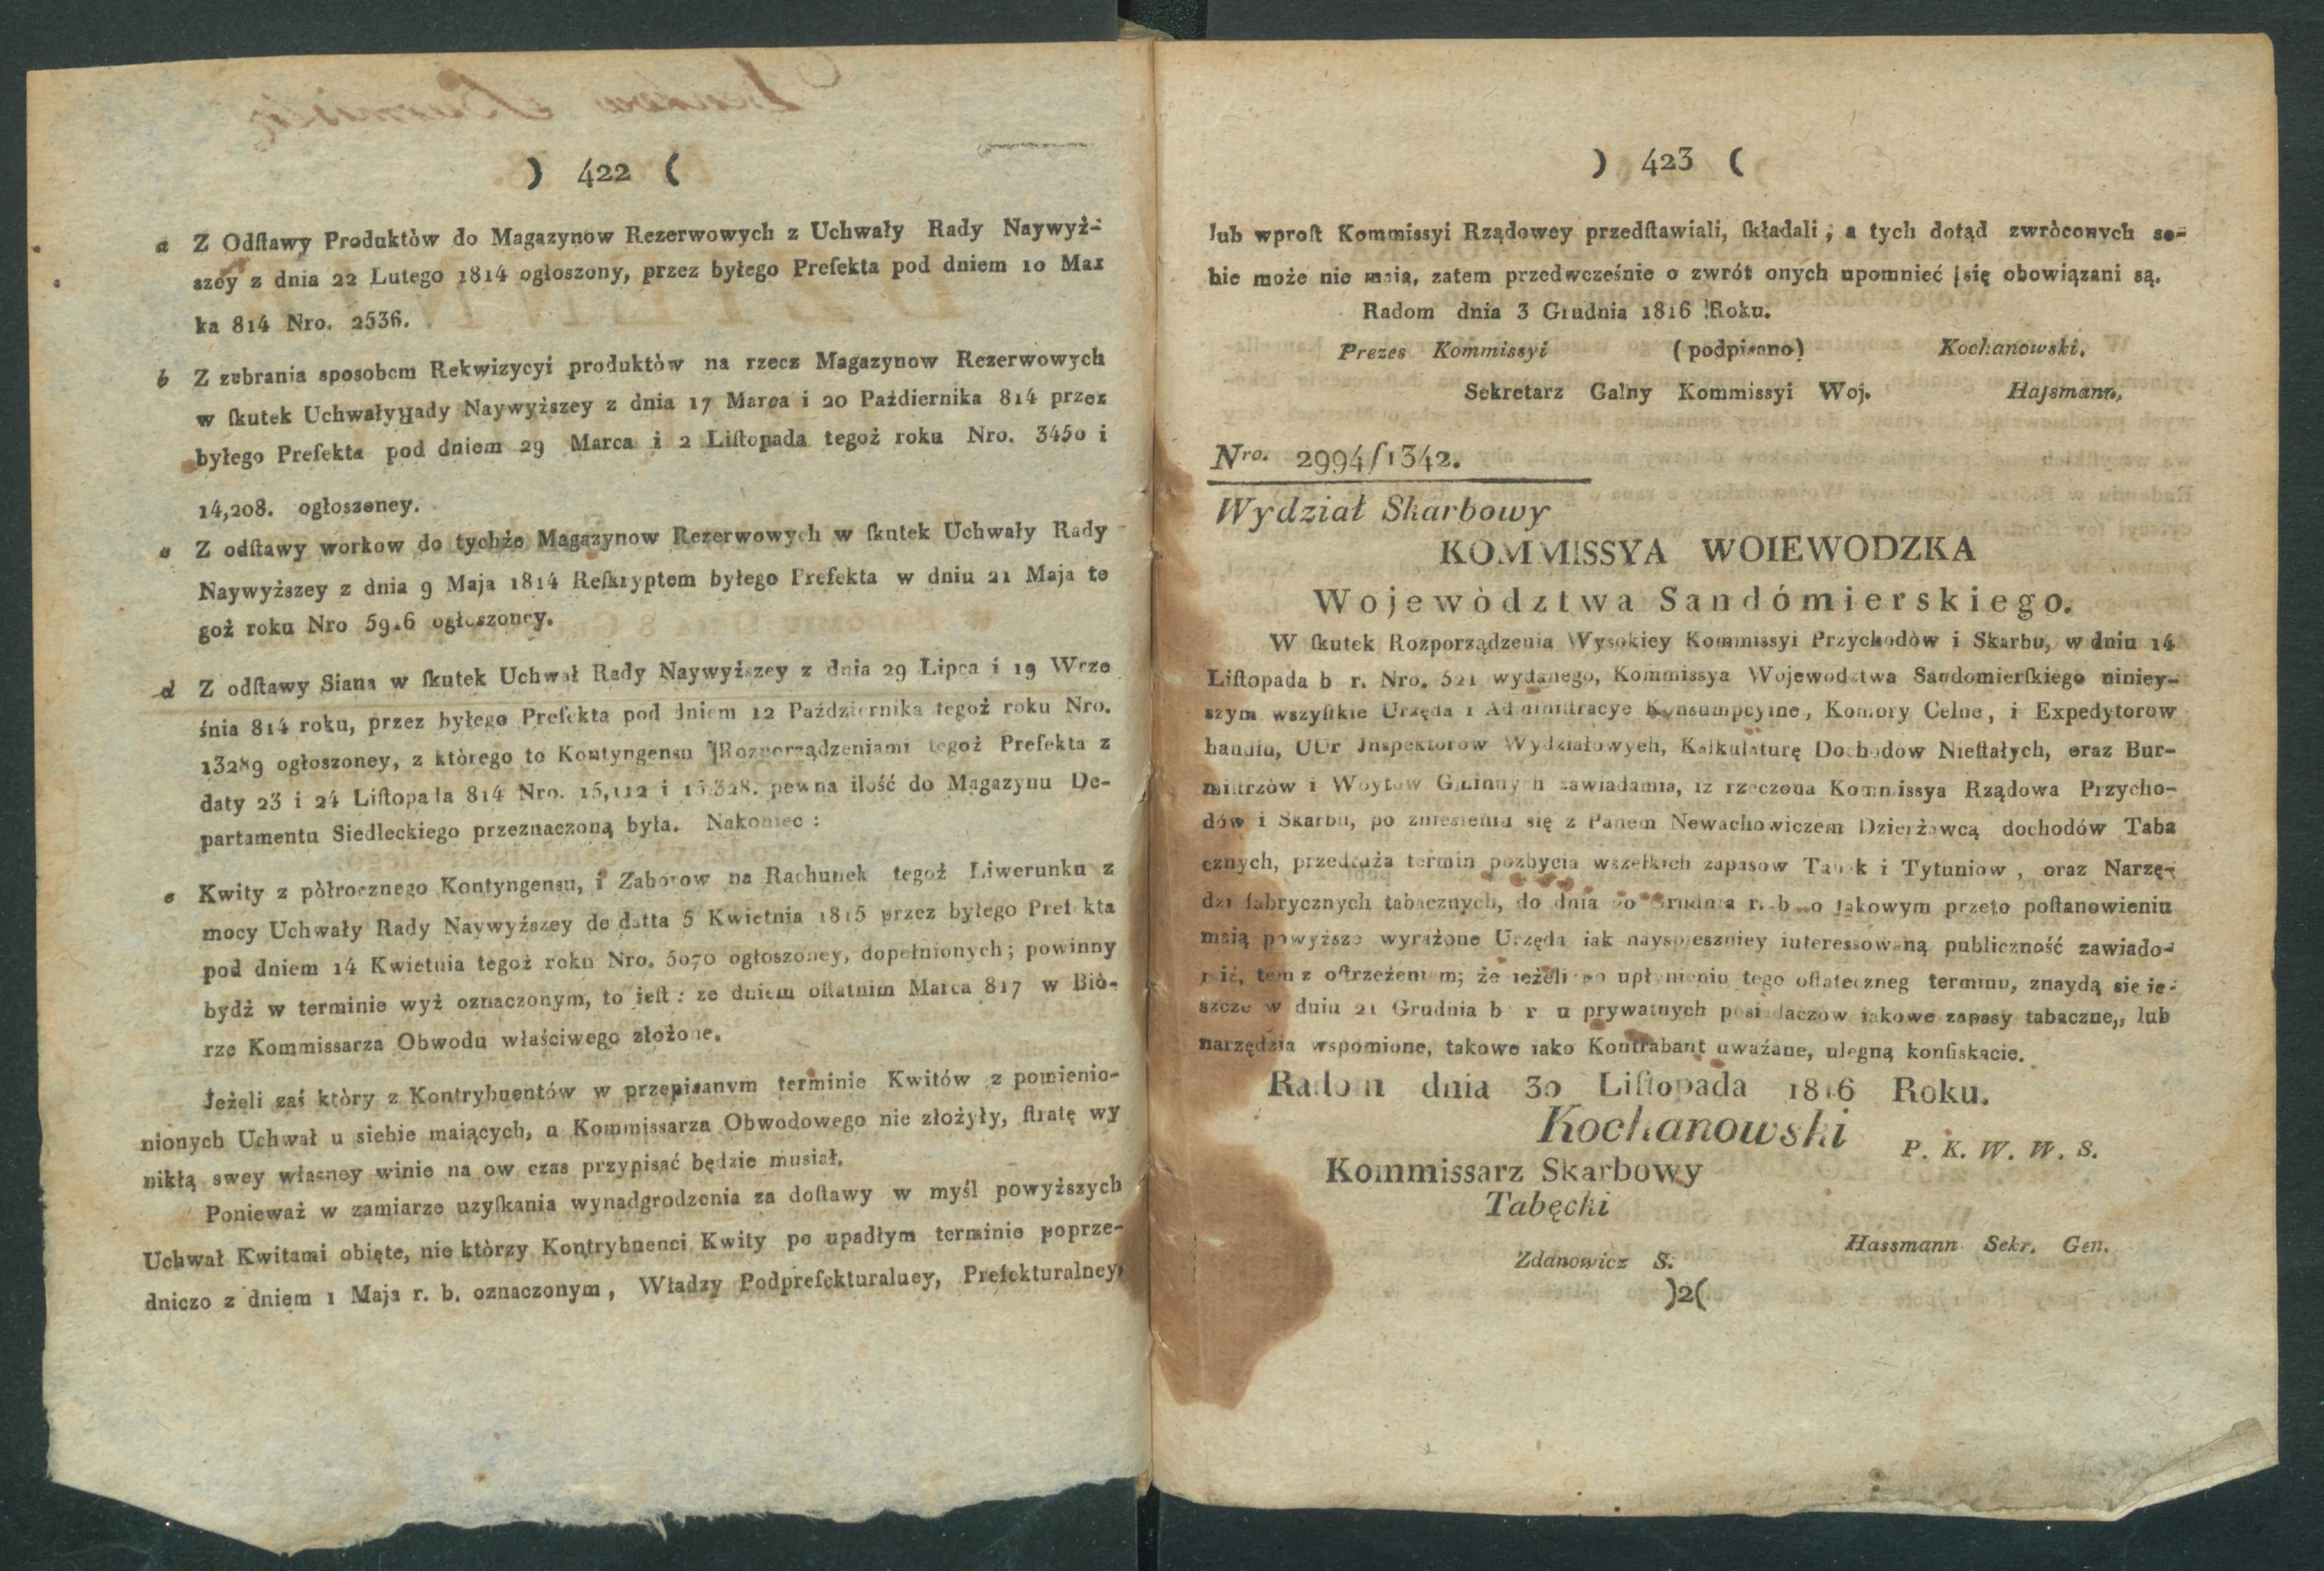 ) 422 (
a Z Odſtawy Produktòw do Magazynow Rezerwowych z Uchwały Rady Naywyż-
szey z dnia 22 Lutego 1814 ogłoszony, przez byłego Prefekta pod dniem 10 Mar
ka 814 Nro. 2536.
b Z zebrania sposobem Rekwizycyi produktòw na rzecz Magazynow Rezerwowych
w ſkutek Uchwały Rady Naywyższey z dnia 17 Marca i 20 Października 814 przez
byłego Prefekta pod dniem 29 Marca i 2 Liſtopada tegoż roku Nro. 3450 i
14,208. ogłoszoney.
c Z odſtawy workow do tychże Magazynow Rezerwowych w ſkutek Uchwały Rady
Naywyższey z dnia 9 Maja 1814 Reſkryptem byłego Prefekta w dniu 21 Maja te
goż roku Nro ogłoszoney.
d Z odſtawy Siana w ſkutek Uchwał Rady Naywyższey z dnia 29 Lipca i 19 Wrze
śnia 814 roku, przez byłego Prefekta pod dniem 12 Października tegoż roku Nro.
13289 ogłoszoney, z ktòrego to Kontyngensu Rozporządzeniami tegoż Prefekta z
daty 23 i 24 Liſtopada 814 Nro. 15,112 i 15,328. pewna ilość do Magazynu De-
partamentu Siedleckiego przeznaczoną była. Nakoniec :
e Kwity z pòłrocznego Kontyngensu, i Zaborow na Rachunek tegoż Liwerunku z
mocy Uchwały Rady Naywyższey de datta 5 Kwietnia 1815 przez byłego Prefekta
pod dniem 14 Kwietnia tegoż roku Nro. 5070 ogłoszoney, dopełnionych; powinny
bydż w terminie wyż oznaczonym, to ieſt : ze dniem oſtatnim Marca 817 w Biò-
rze Kommissarza Obwodu właściwego złożone.
Jeżeli zaś ktòry z Kontrybuentów w przepisanym terminie Kwitów z pomienio-
nionych Uchwał u siebie maiących, u Kommissarza Obwodowego nie złożyły, ſtratę wy
nikłą swey własney winie na ow czas przypisać będzie musiał.
Ponieważ w zamiarze uzyſkania wynadgrodzenia za doſtawy w myśl powyższych
Uchwał Kwitami obięte, nie ktòrzy Kontrybuenci Kwity po upadłym terminie poprze-
dniczo z dniem 1 Maja r. b. oznaczonym, Władzy Podprefekturalney, Prefekturalney,
) 423 (
lub wproſt Kommissyi Rządowey przedſtawiali, ſkładali, a tych dotąd zwròconych so-
bie może nie maią, zatem przedwcześnie o zwrót onych upomnieć się obowiązani są.
Radom dnia 3 Grudnia 1816 Roku.
Prezes Kommissyi (podpisano) Kochanowski.
Sekretarz Galny Kommissyi Woj. Hajsmann,
Nro. 2994/1342.
Wydział Skarbowy
KOMMISSYA WOIEWODZKA
Wojewòdztwa Sandómierskiego.
W ſkutek Rozporządzenia Wysokiey Kommissyi Przychodòw i Skarbu, w dniu 14
Liſtopada b r. Nro. 521 wydanego, Kommissya Wojewodztwa Sandomierſkiego niniey-
szym wszyſtkie Urzęda i Adminiſtracye Konsumpcyine, Komory Celne, i Expedytorow
handlu, UUr Jnspektorow Wydziałowych, Kalkulaturę Dochodow Nieſtałych, oraz Bur-
miſtrzòw i Woytow Gminnych zawiadamia, iż rzeczona Kommissya Rządowa Przycho-
dów i Skarbu, po zniesieniu się z Panem Newachowiczem Dzierżawcą dochodów Taba
cznych, przedłuża termin pozbycia wszelkich zapasow Tabak i Tytuniow , oraz Narzę-
dzi fabrycznych tabacznych, do dnia 20 Grudnia r. b. o iakowym przeto poſtanowieniu
maią powyższe wyrażone Urzęda iak nayspieszniey interessowaną publiczność zawiado-
mić, tem z oſtrzeżeniem; że ieżeli po upłynieniu tego oſtateczneg terminu, znaydą się ie-
szcze w dniu 21 Grudnia b r u prywatnych posiadaczow iakowe zapasy tabaczne,, lub
narzędzia wspomione, takowe iako Kontrabant uważane, ulegną konfiskacie.
Radom dnia 30 Liſtopada 1816 Roku.
Kochanowski P. K. W. W. S.
Kommissarz Skarbowy
Tabęcki
Hassmann Sekr. Gen.
Zdanowicz S.
)2(